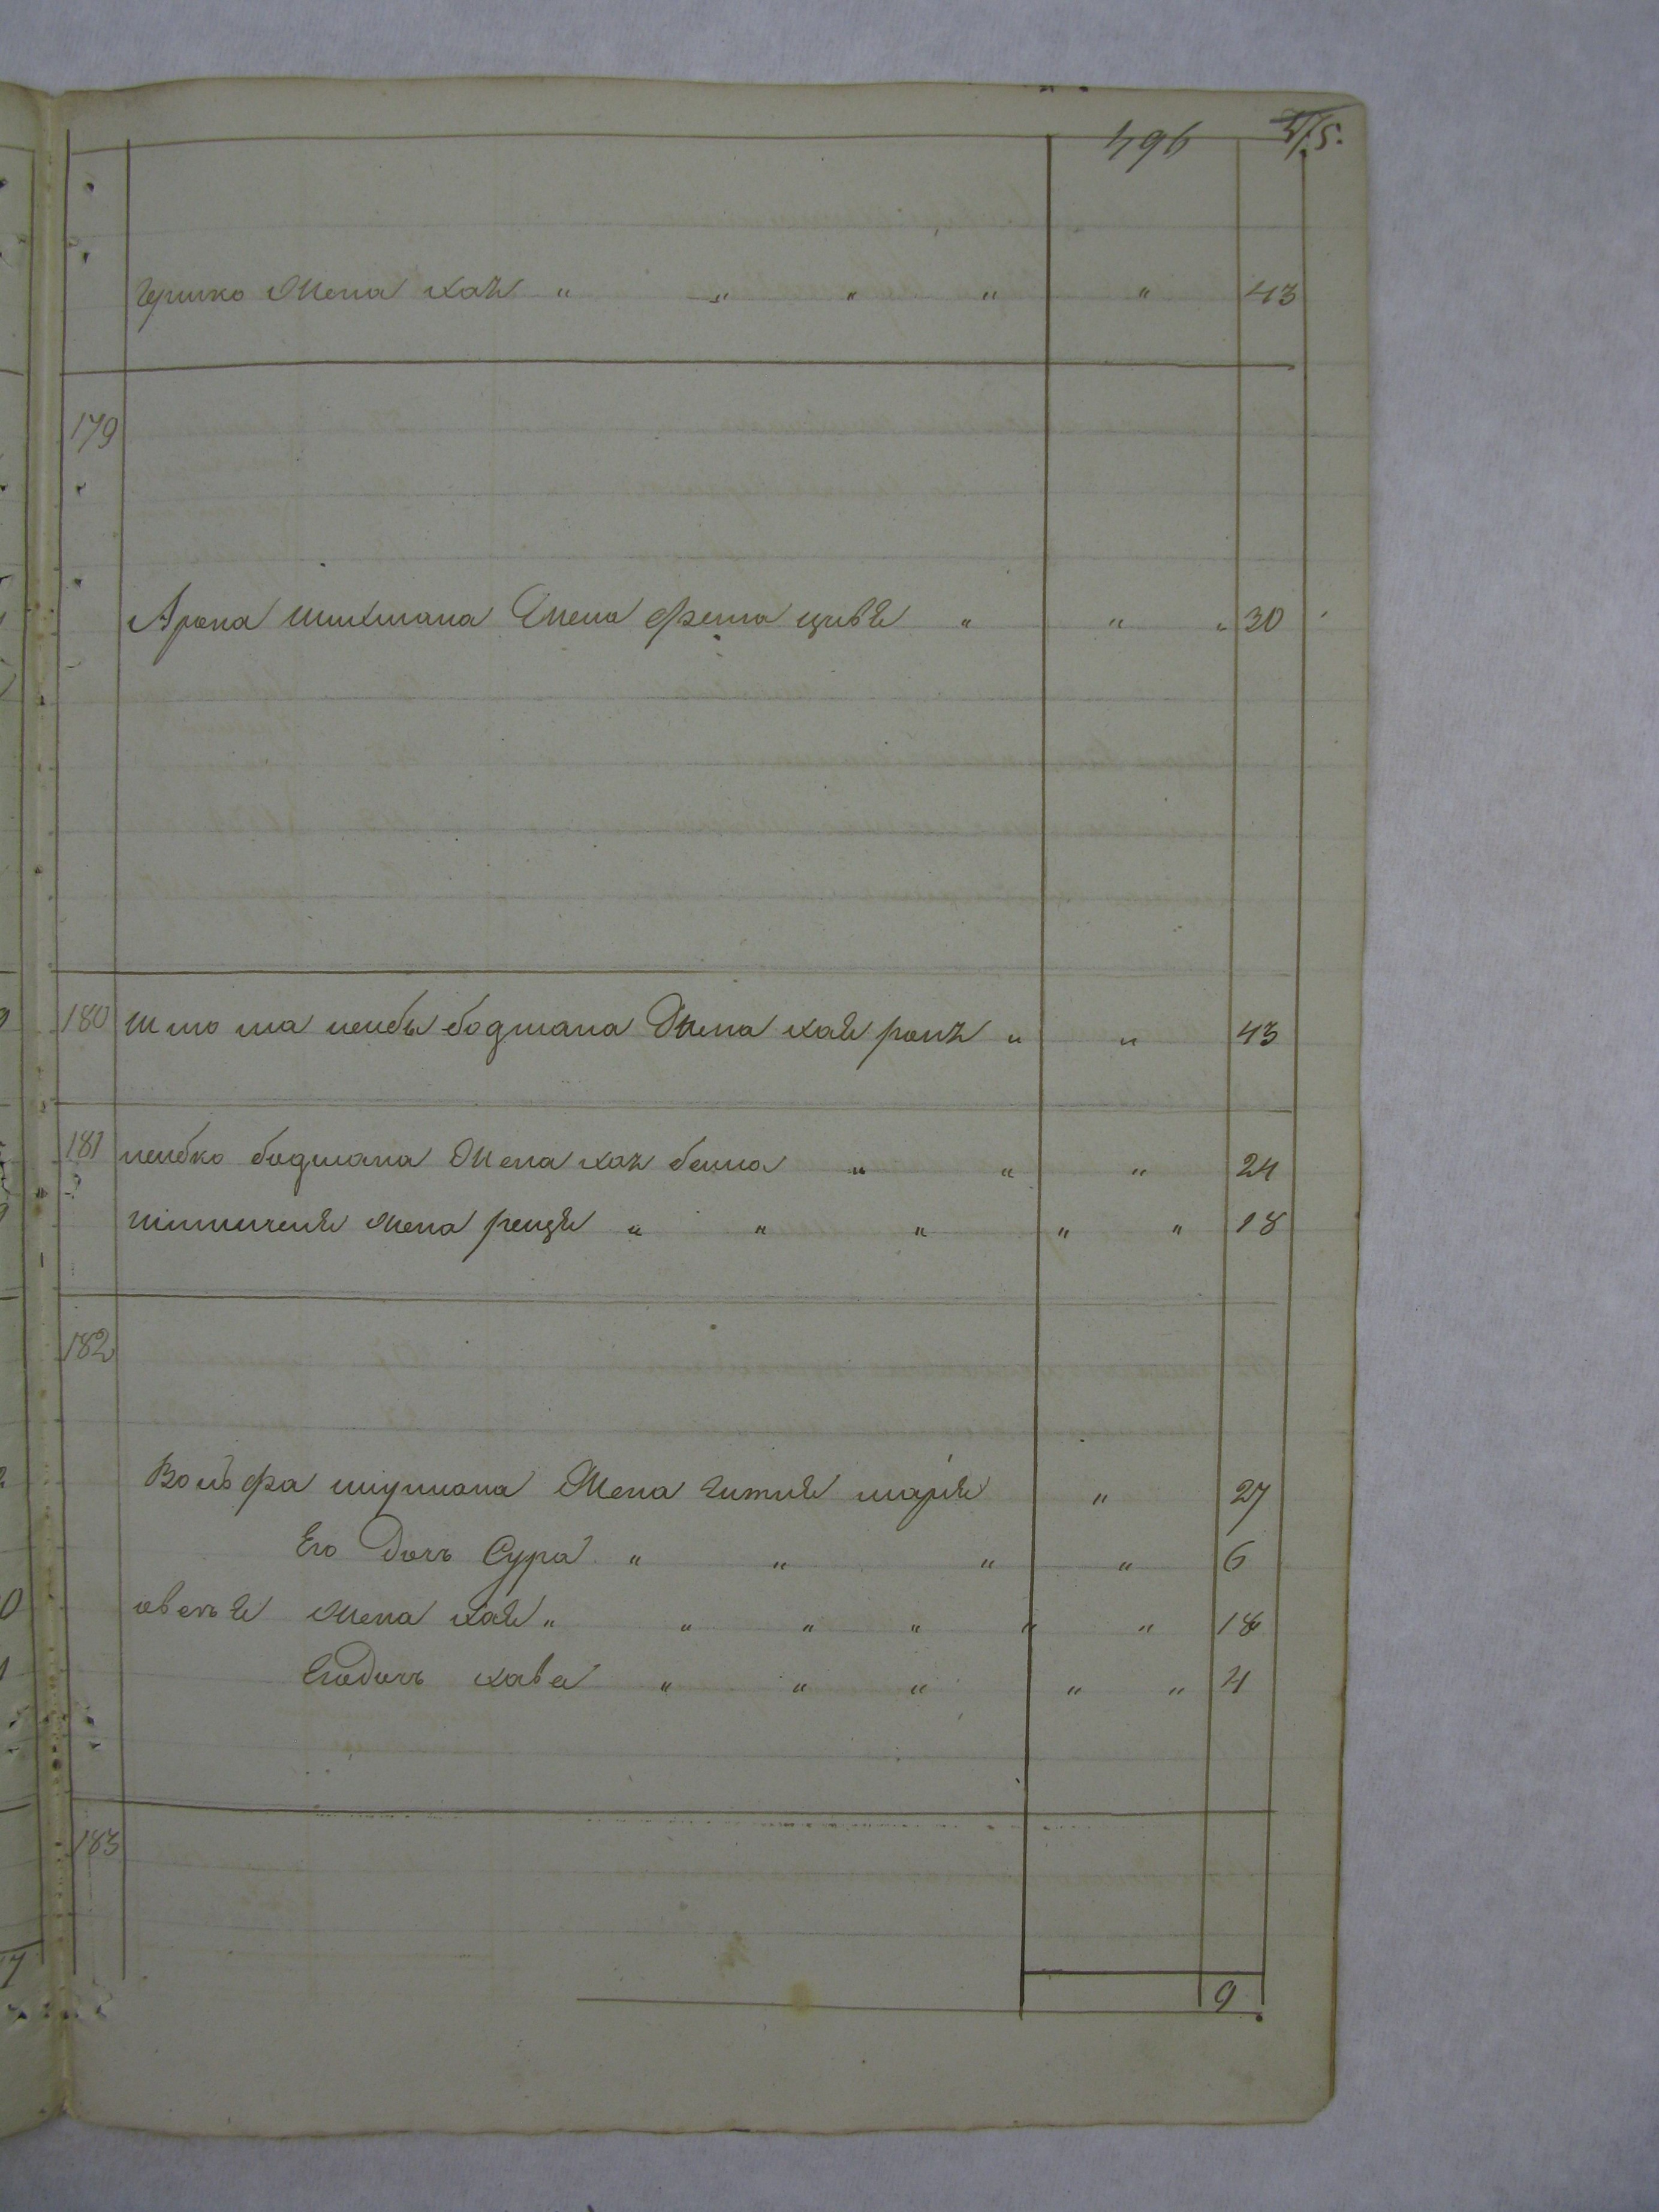 496
Гершко Жена хая " " " " " 43
179
Арона Жена фейга цивя " " " 30
180 лейбы бодмана Жена хая " " 43
181 лейбко бодмана Жена хая бейла " " " 24
Жена рейзя " " " " " 18
182
Вольфа шушмана Жена гитля марія " 27
Его Дочь Сура " " " " 6
Жена хая " " " " " " 18
Его дочь хава " " " " " 4
183
9